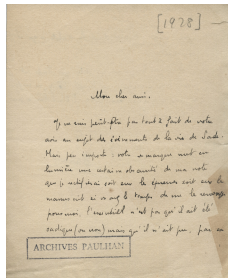 [1928] —
Mon cher ami.
Je ne suis peut-être pas tout à fait de votre
avis au sujet des événements de la vie de Sade.
Mais peu importe : votre remarque met en
lumière une certaine obscurité de ma note
que je rectifierai soit sur les épreuves soit sur le
manuscrit si vous avez le temps de me le renvoyer
pour moi. l'essentiel n'est pas qu'il ait été
(ou non) mais qu'il n'ait pu, par
ARCHIVES PAULHAN